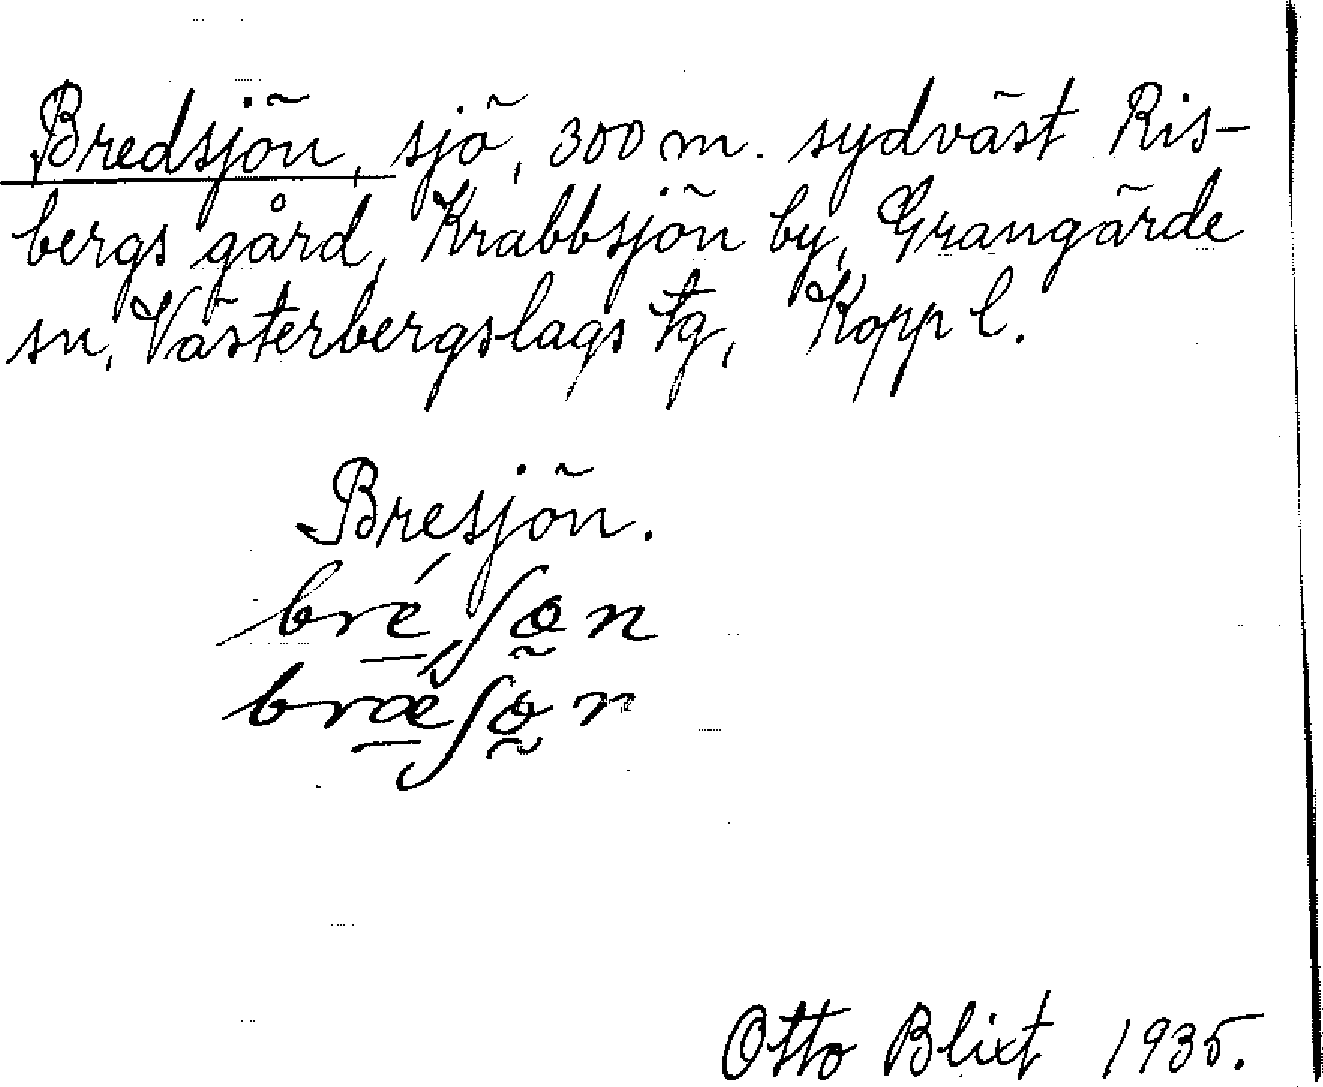 Bredsjön, sjö, 300 m. sydväst Ris-
bergs gård, Krabbsjön by, Grangärde
sn, Västerbergslags tg, Kopp l.
Bresjön.
bréʃɵn
bræ̀ʃɵn
Otto Blixt 1935.